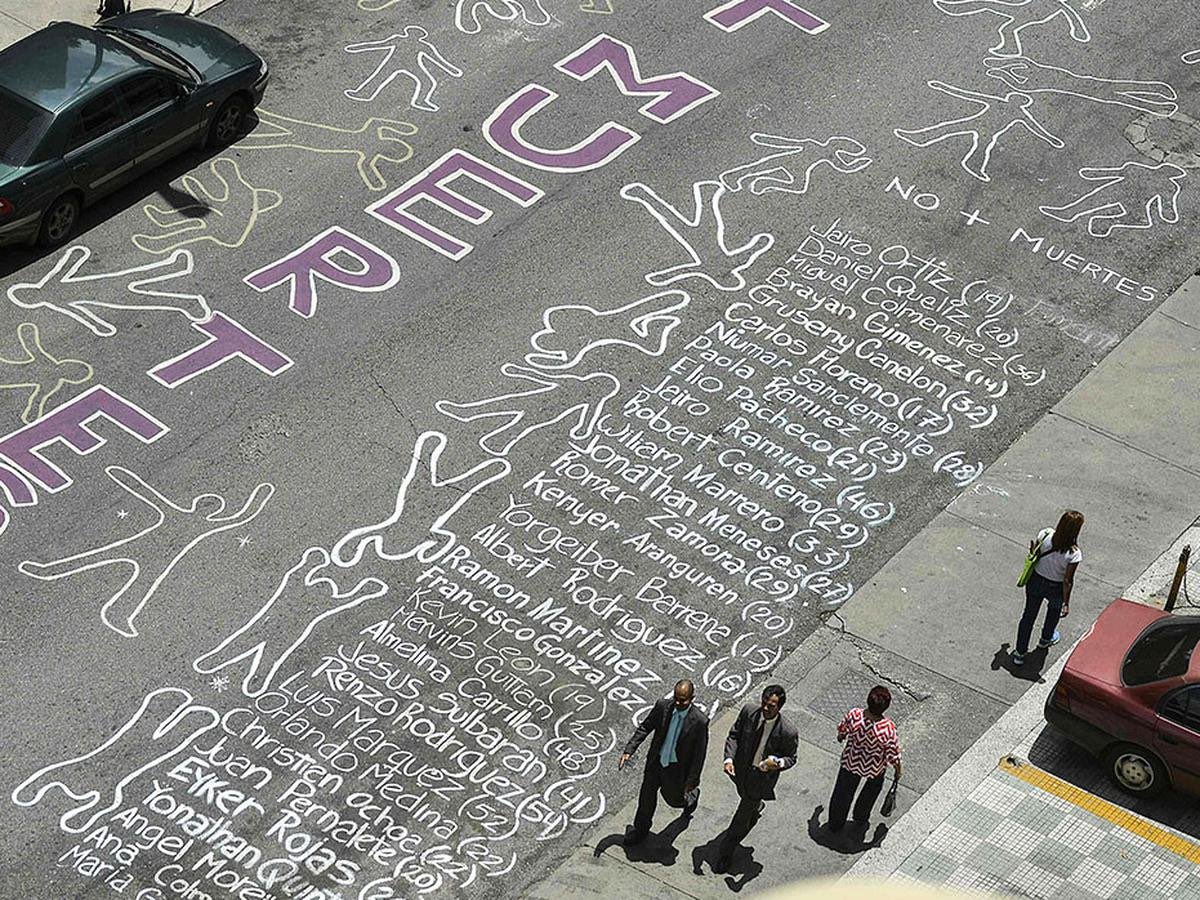 MUERTES
NO + MUERTES
Jairo Ortiz (19)
Daniel Queliz (20)
Miguel Colmenarez (36)
Brayan Gimenez (14)
Gruseny Canelon (32)
Carlos Moreno (17)
Niumar Sanclemente (28)
Paola Ramirez (23)
Elio Pacheco (21)
Jairo Ramirez (46)
Robert Centeno (29)
Wiliam Marrero (33)
Jonathan Meneses (27)
Romer Zamora (29)
Kenyer Aranguren (20)
Yorgeiber Barrene (15)
Albert Rodriguez (16)
Ramon Martinez
Francisco Gonzalez
Kevin Leon (19)
Kervins Guitian (25)
Almelina Carrillo (48)
Jesus Sulbaran (41)
Renzo Rodriguez (54)
Luis Marquez (52)
Orlando Medina (22)
Christian Ochoa (22)
Juan Pernalete (20)
Eyker Rojas
Yonathan Quint
Angel Morei
Ana Colm
Maria G